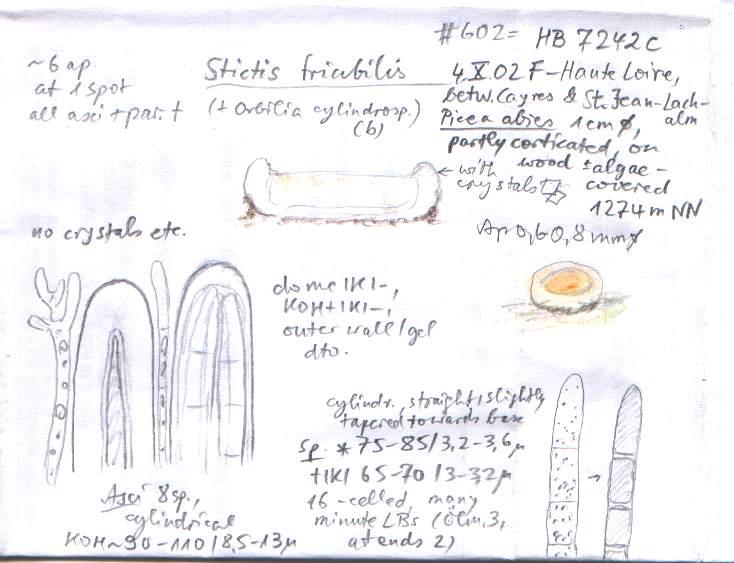 #602= HB 7242c
~6 ap.
at 1 spot
all asci + par. †
Stictis friabilis
(+ Orbilia cylindrosp.)
(b)
4.X.02 F-Haute Loire,
betw. Cayres & St. Jean-Lach-
alm
Picea abies 1cm ø,
partly corticated, on
wood ± algae-
covered
1274m NN
Ap 0,6-0,8mm ø
← with
crystals
no crystals etc.
dome IKI-,
KOH+IKI-,
outer wall/gel
dto.
cylindr. straight/slightly
tapered towards base
Sp. *75-85/3,2-3,6µ
†IKI 65-70/3-3,2µ
16-celled, many
minute LBs (Ölm. 3,
at ends 2)
Asci 8sp.,
cylindrical
KOH ~90-110/8,5-13µ